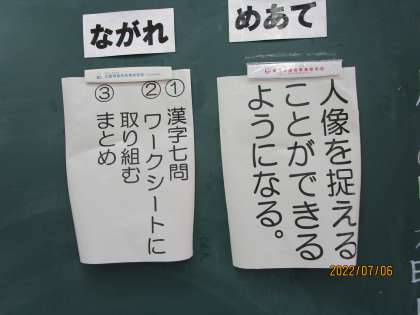 めあて
人像を捉える
ことができる
ようになる。
ながれ
① 漢字七問
② ワークシートに
取り組む
③ まとめ
2022/07/06